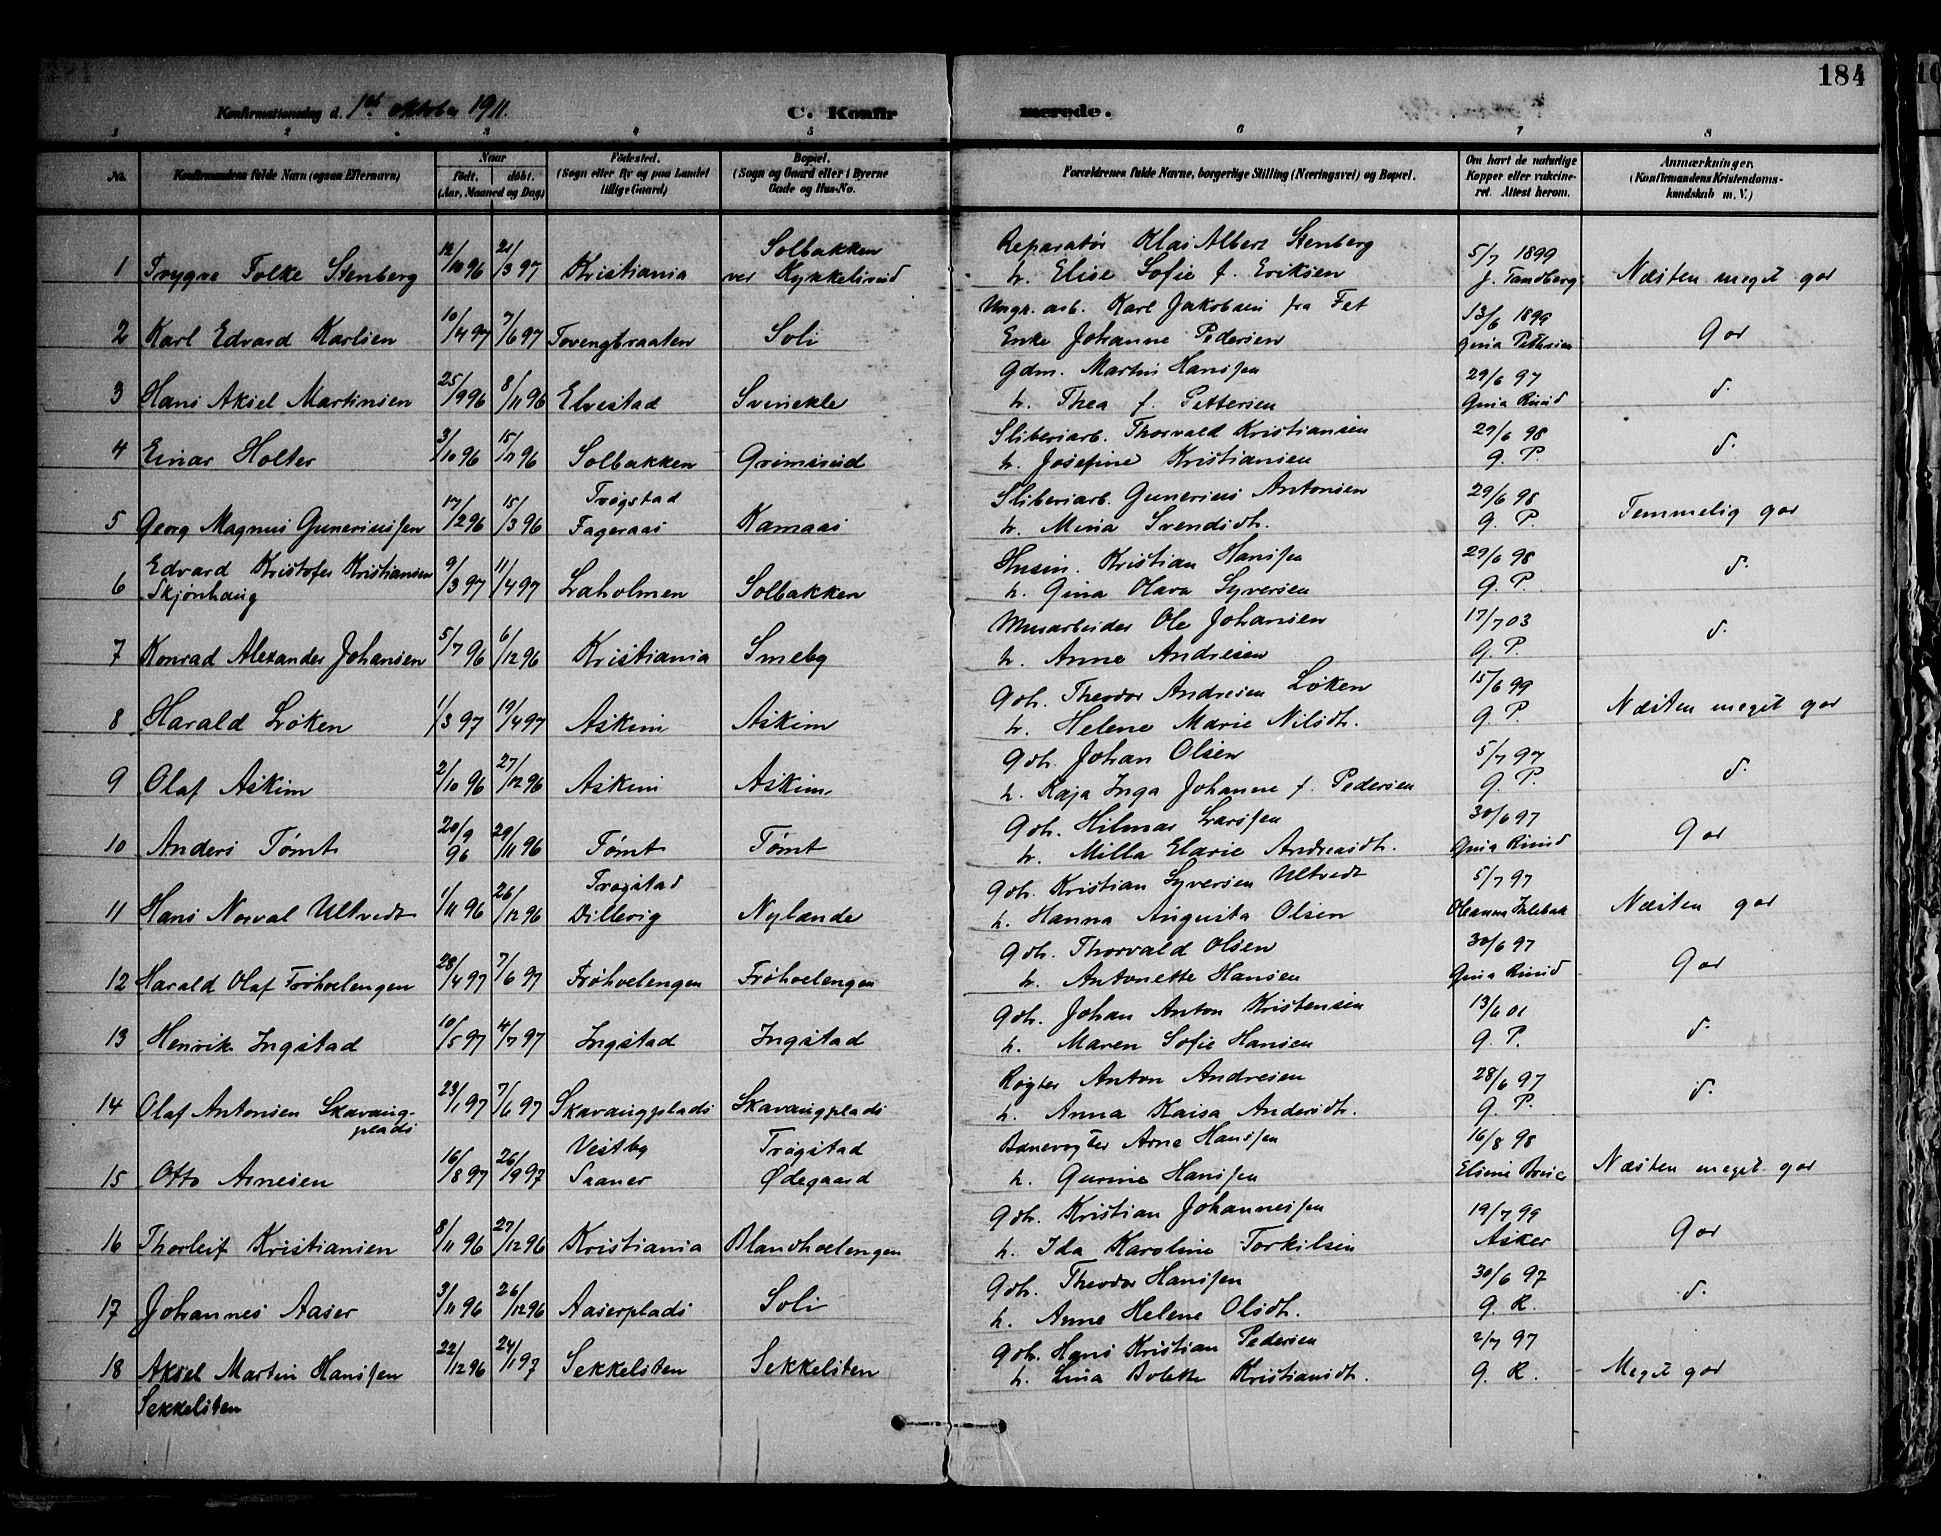 184
Konfirmationsdag d. 1st oktober 1911. C. Konfirmerede.
1 2 3 4 5 6 7 8
No.
Konfirmandens fulde Navn (ogsaa Efternavn)
Naar
födt. döbt.
(Aar, Maaned og Dag)
Födested.
(Sogn eller By og paa Landet
tillige Gaard)
Bopæl.
(Sogn og Gaard eller i Byerne
Gade og Hus-No.
Forældrenes fulde Navne, borgerlige Stilling (Næringsvei) og Bopæl.
Om havt de naturlige
Kopper eller vakcine-
ret. Attest herom.
Anmærkninger.
(Konfirmandens Kristendoms-
kundskab m. V.)
1 Trygve Folke Stenberg 12/10 96 21/3 97 Kristiania Solbakken
ver Kykkelsrud
Reparatør Klas Albert Stenberg
h. Elise Sofie f. Eriksen
5/7 1899
J. Tandberg
Næsten meget god
2 Karl Edvard Karlsen 10/4 97 7/6 97 Tovengbraaten Soli
Ungk. arb. Karl Jakobsen fra Fet
Enke Johanne Pedersen
13/6 1899
Gina Pettersen
God
3 Hans Aksel Martinsen 25/9 96 8/11 96 Elvestad Svinekle
Gdm. Martin Hansen
h. Thea f. Pettersen
29/6 97
Gina Ruud
d.
4 Einar Holter 3/10 96 15/12 96 Solbakken Grimsrud
Sliberiarb. Thorvald Kristiansen
h. Josefine Kristiansen
29/6 98
G. P.
d.
5 Georg Magnus Guneriussen 17/12 96 15/3 96 Trøgstad
Fageraas Kamaas
Sliberiarb. Gunerius Antonsen
h. Mina Svendsdt.
29/6 98
G. P.
Temmelig god
6 Edvard Kristofer Kristiansen
Skjønhaug 9/3 97 11/4 97 Laholmen Solbakken
Husm. Kristian Hansen
h. Gina Olava Syversen
29/6 98
G. P.
d.
7 Konrad Alexander Johansen 5/7 96 6/12 96 Kristiania Smeby
Murarbeider Ole Johansen
h. Anne Andresen
17/7 03
G. P.
d.
8 Harald Løken 1/3 97 19/4 97 Askim Askim
Gdb. Theodor Andresen Løken
h. Helene Marie Nilsdt.
15/6 99
G. P.
Næsten meget god
9 Olaf Askim 2/10 96 27/12 96 Askim Askim
Gdb. Johan Olsen
h. Kaja Inga Johanne f. Pedersen
5/7 97
G. P.
d.
10 Anders Tømt 20/9 96 29/11 96 Tømt Tømt
Gdb. Hilmar Larssen
h. Milla Elavie Andreasdt.
30/6 97
Gina Ruud
God
11 Hans Norval Ultvedt 1/11 96 26/12 96 Trøgstad
Dillevig Nylænde
Gdb. Kristian Syversen Ultvedt
h. Hanna Augusta Olsen
5/7 97
Næsten god
12 Harald Olaf Frøhvelengen 28/4 97 7/6 97 Frøhvelengen Frøhvelengen
Gdb. Thorvald Olsen
h. Antonette Hansen
30/6 97
Gina Ruud
God
13 Henrik Ingstad 10/5 97 4/7 97 Ingstad Ingstad
Gdb. Johan Anton Kristensen
h. Maren Sofie Hansen
13/6 01
G. P.
d.
14 Olaf Antonsen Skavaug-
plads 23/1 97 7/6 97 Skavaugplads Skavaugplads
Røgter Anton Andresen
h. Anna Kaisa Andersdt.
28/6 97
G. P.
d.
15 Otto Arnesen 16/8 97 26/9 97 Vestby
Saaner Trøgstad
Ødegaard
Banevogter Arne Hanssen
h. Gurine Hanssen
16/8 98
Næsten meget god
16 Thorleif Kristiansen 8/11 96 27/12 96 Kristiania Blandhvelengen
Gdb. Kristian Johannessen
h. Ida Karoline Torkilsen
19/7 99
Asker
God
17 Johannes Aaser 3/11 96 26/12 96 Aaserplads Soli
Gdb. Theodor Hanssen
h. Anne Helene Olsdt.
30/6 97
G. R.
d.
18 Aksel Martin Hanssen
Sekkelsten 22/12 96 24/1 97 Sekkelsten Sekkelsten
Gdb. Hans Kristian Pedersen
h. Lina Bolette Kristiansdt.
2/7 97
G. R.
Meget god